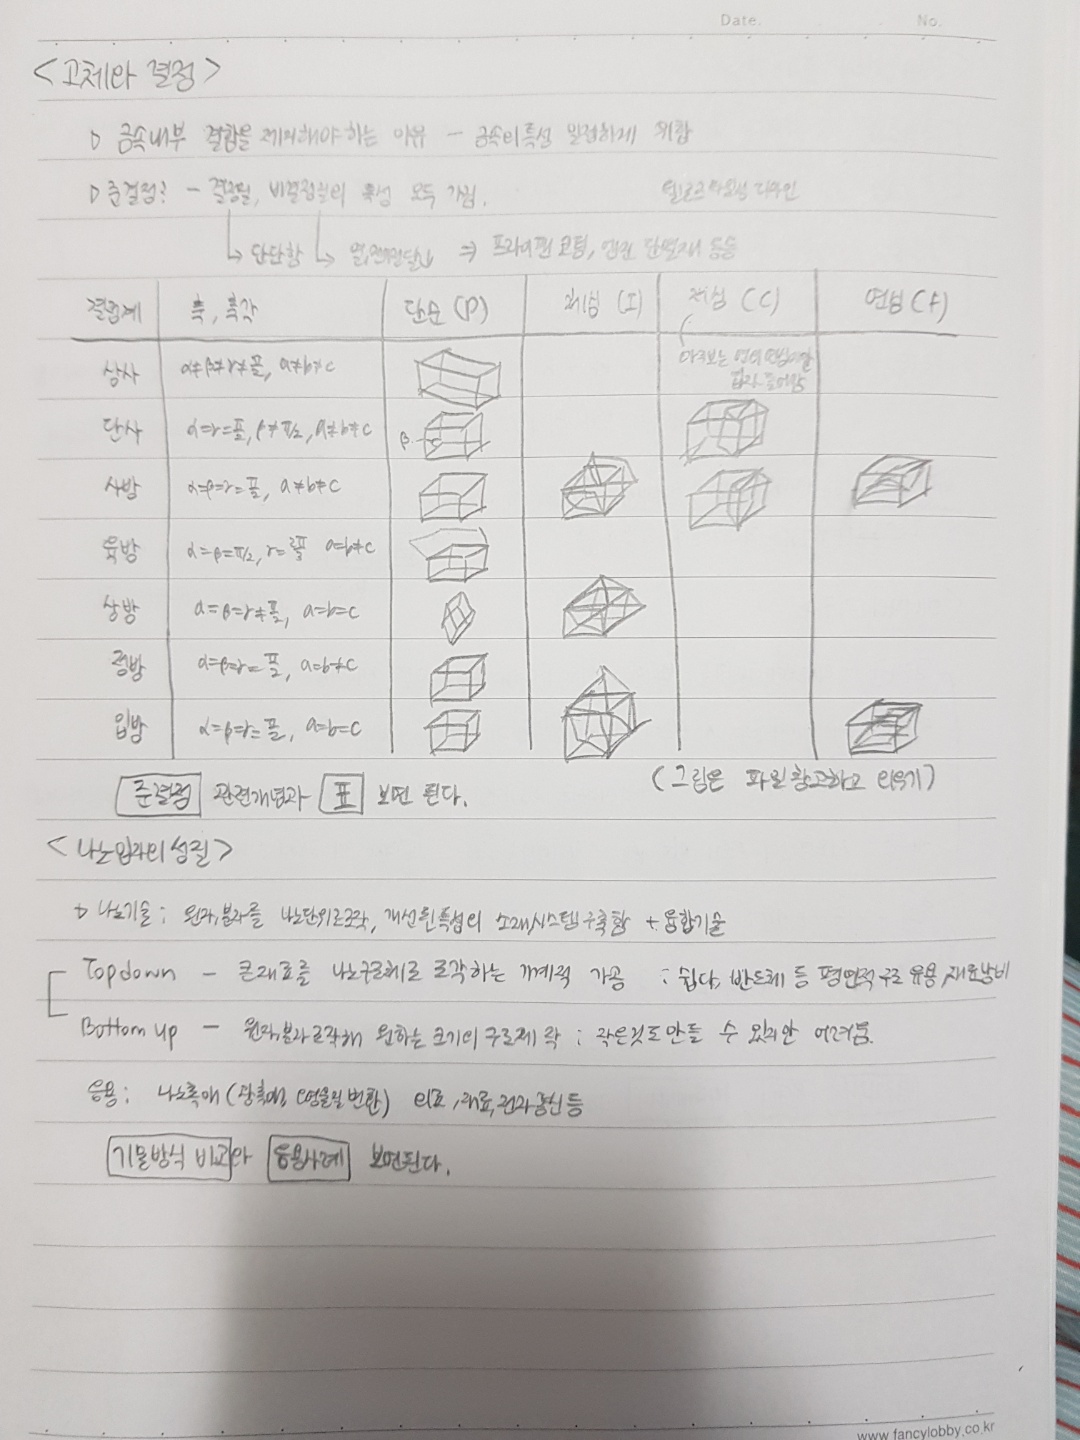 Date. No.
<고체와 결정>
▷ 금속내부 결함을 제어해야 하는 이유 - 금속의 특성 일정하게 위함
▷ 준결정? - 결정질, 비결정질의 특성 모두 가짐.
펜로즈 타일 디자인
↳ 단단함 ↳ 열전달↓ ⇒ 프라이팬 코팅, 엔진 단열재 등등
결정계 축, 축각 단순 (P) 체심 (I) 저심 (C) 면심 (F)
삼사 α≠β≠γ≠π/2, a≠b≠c
단사 α=γ=π/2, β≠π/2, a≠b≠c β
사방 α=β=γ=π/2, a≠b≠c
육방 α=β=π/2, γ=2π/3 a=b≠c
삼방 α=β=γ≠π/2, a=b=c
정방 α=β=γ=π/2, a=b≠c
입방 α=β=γ=π/2, a=b=c
(그림은 파일 참고하고 외우기)
준결정 관련개념과 표 보면 된다.
<나노입자의 성질>
▷ 나노기술 : 원자,분자를 나노단위로 조작, 개선된 특성의 소재,시스템 구축함 + 융합기술
Top down - 큰 재료를 나노구조체로 조각하는 기계적 가공 : 쉽다, 반도체 등 평면적 구조 유용, 재료낭비
Bottom up - 원자,분자 조작해 원하는 크기의 구조제작 : 작은것도 만들 수 있지만 어려움.
응용 : 나노촉매 (광촉매, 변환) 의료, 재료, 전자통신 등
기물방식 비교와 응용사례 보면된다.
www.fancylobby.co.kr